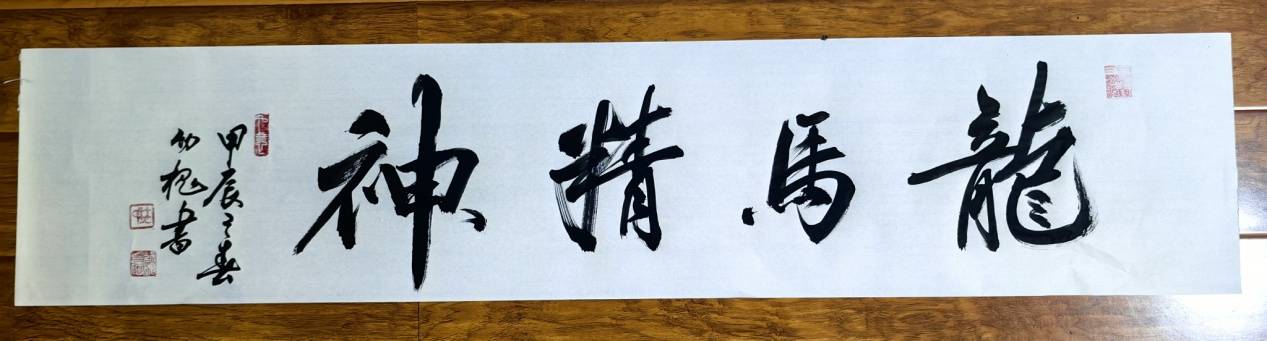 龍馬精神
甲辰之春
幼槐書